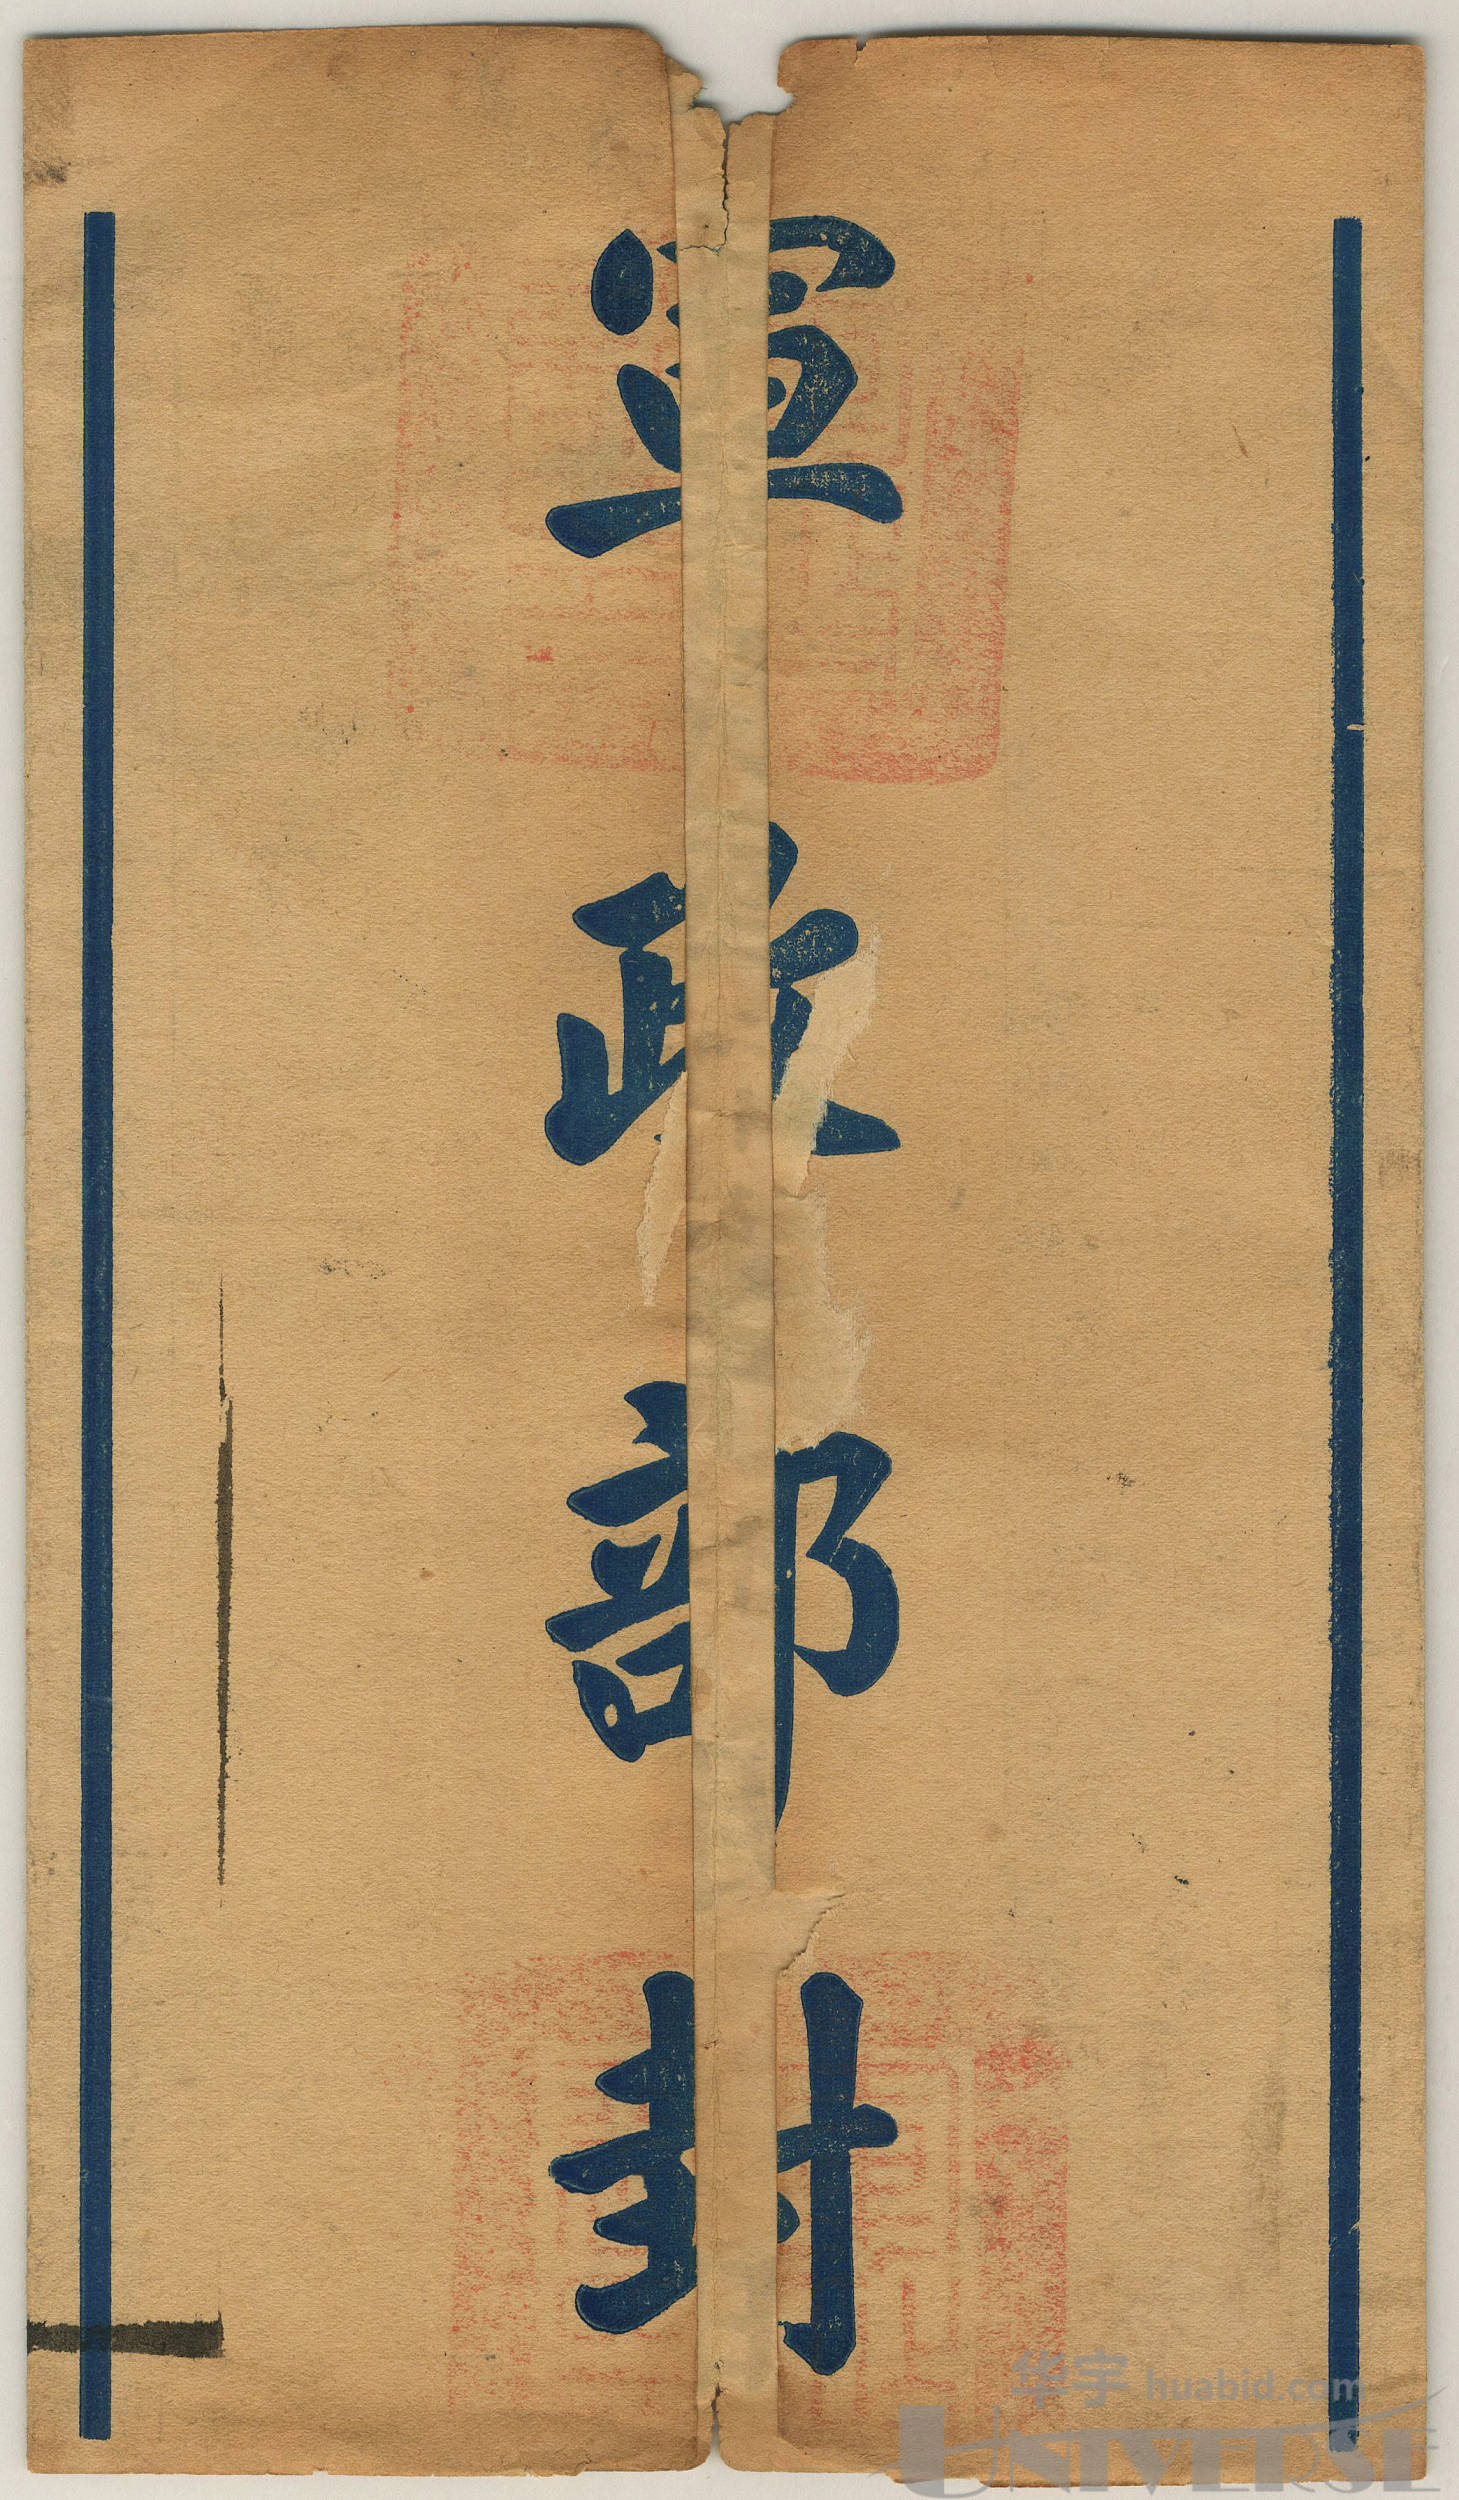 軍政部封
华宇 huabid.com
UNIVERSE